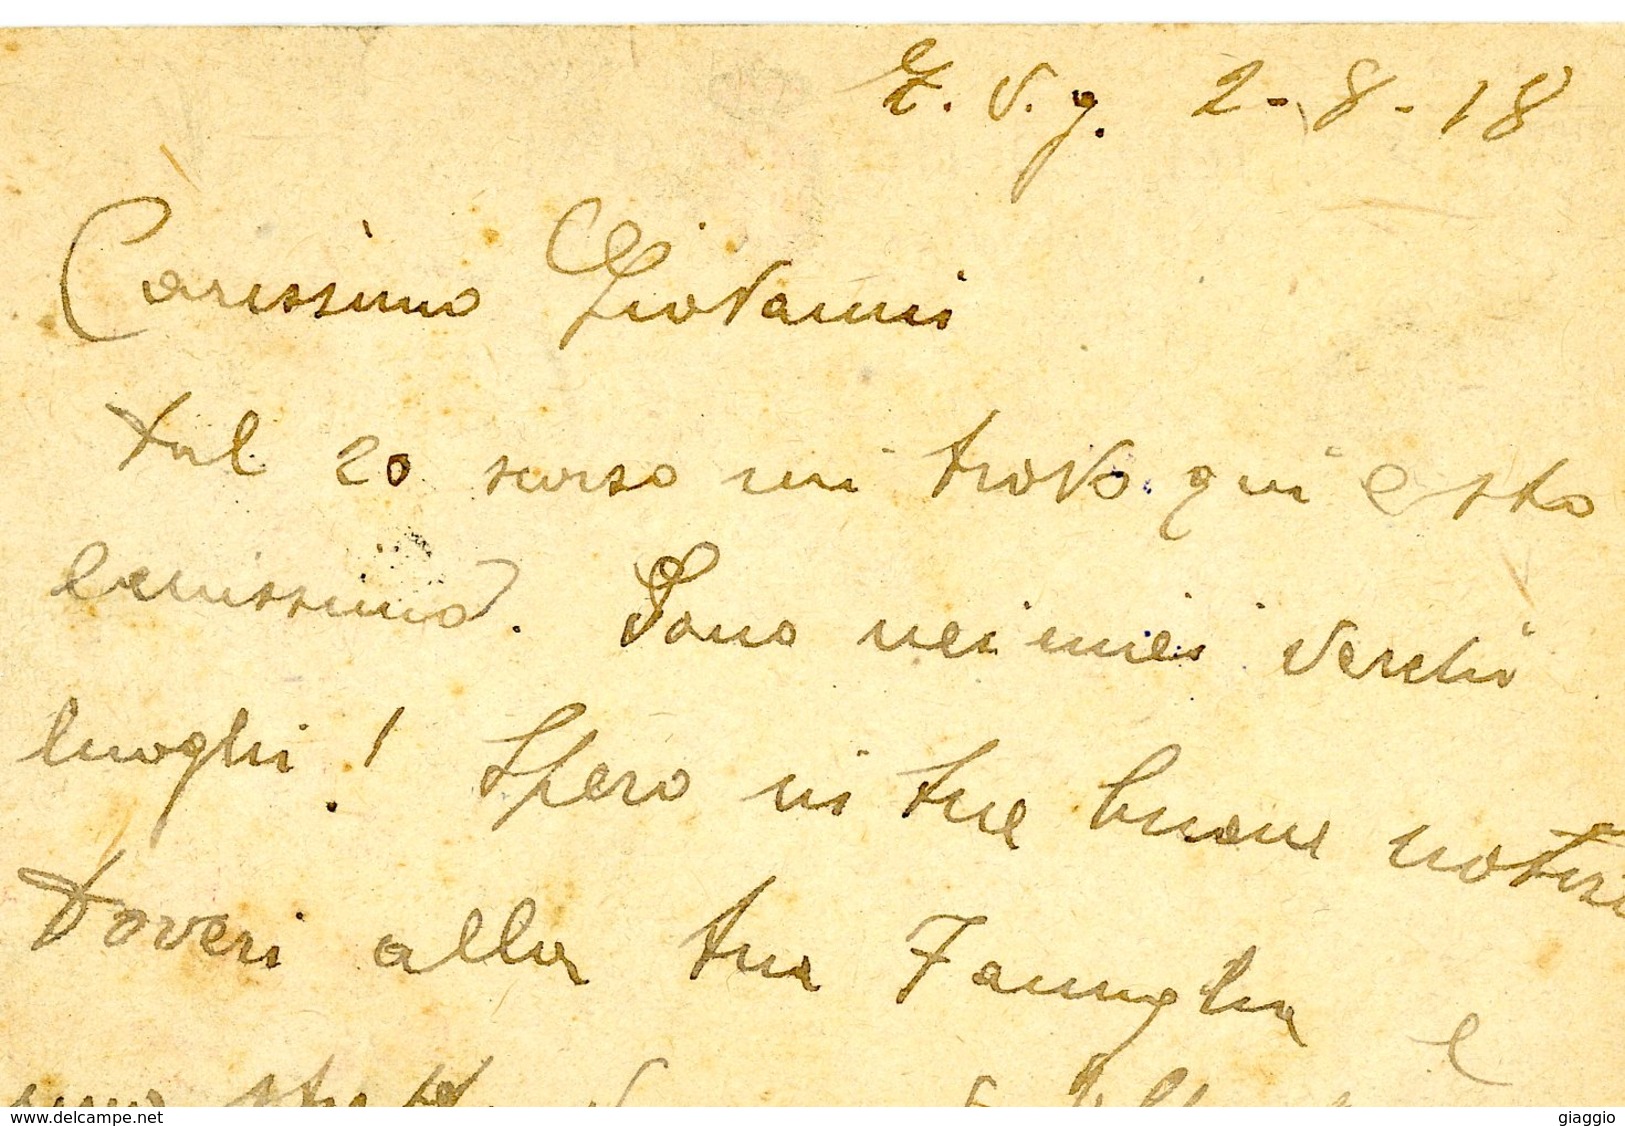 Z. d. g. 2-8-18
Carissimo Giovanni
Dal 20 scorso mi trovo qui e sto
benissimo. Sono nei miei vecchi
luoghi! Spero in tue buone notizie
Doveri alla tua Famiglia e
www.delcampe.net
giaggio